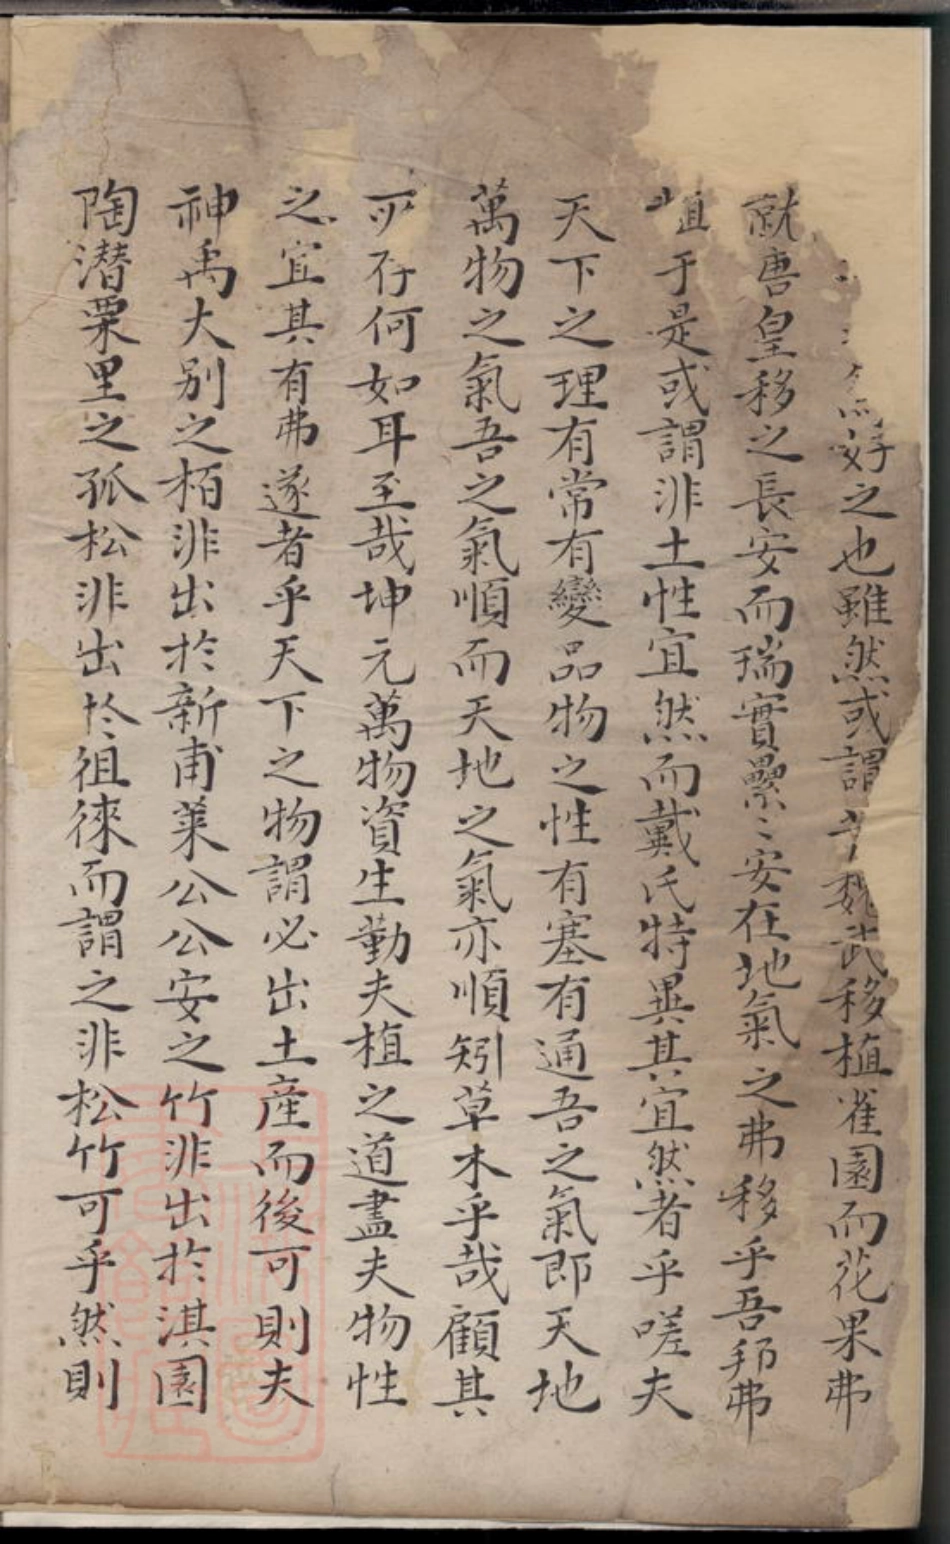 好之也雖然或謂魏武移植雀園而花果弗
就唐皇移之長安而瑞實纍〻安在地氣之弗移乎吾邦弗
植于是或謂非土性宜然而戴氏特異其宜然者乎嗟夫
天下之理有常有變品物之性有塞有通吾之氣即天地
萬物之氣吾之氣順而天地之氣亦順矧草木乎哉顧其
所存何如耳至哉坤元萬物資生勤夫植之道盡夫物性
之宜其有弗遂者乎天下之物謂必出土産而後可則夫
神禹大别之栢非出於新甫萊公公安之竹非出於淇園
陶潜栗里之孤松非出於徂徠而謂之非松竹可乎然則